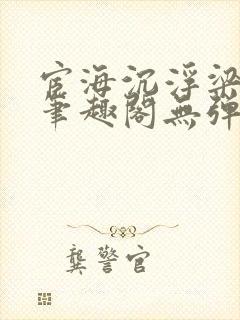 宦海沉浮梁
笔趣阁無弹
龔警官